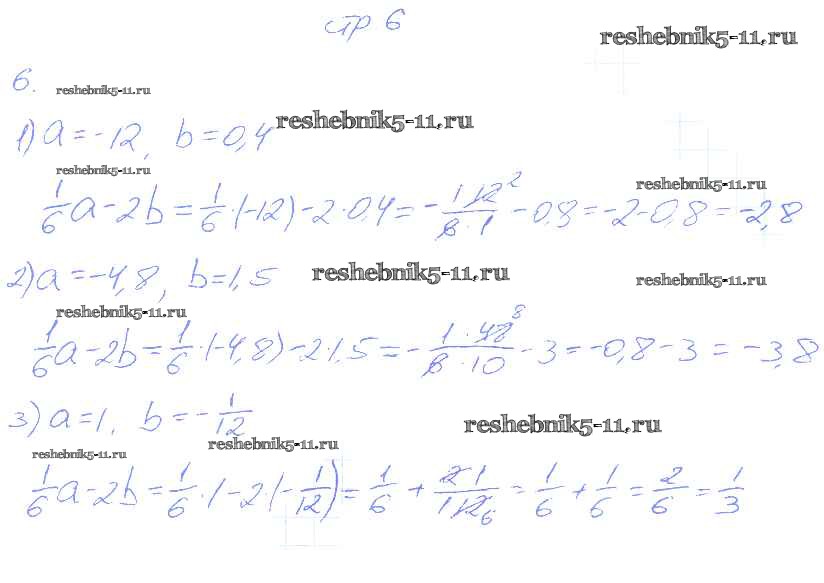 стр 6
reshebnik5-11.ru
6.
reshebnik5-11.ru
1) a = -12, b = 0,4
reshebnik5-11.ru
reshebnik5-11.ru
reshebnik5-11.ru
1/6 a - 2b = 1/6 · (-12) - 2 · 0,4 = - (1 12 2)/(6 · 1) - 0,8 = -2 - 0,8 = -2,8
2) a = -4,8, b = 1,5
reshebnik5-11.ru
reshebnik5-11.ru
reshebnik5-11.ru
1/6 a - 2b = 1/6 · (-4,8) - 2 · 1,5 = - (1 · 48 8)/(6 · 10) - 3 = -0,8 - 3 = -3,8
3) a = 1, b = - 1/12
reshebnik5-11.ru
reshebnik5-11.ru
reshebnik5-11.ru
1/6 a - 2b = 1/6 · 1 - 2 · (- 1/12) = 1/6 + (2 1)/(1 12 6) = 1/6 + 1/6 = 2/6 = 1/3